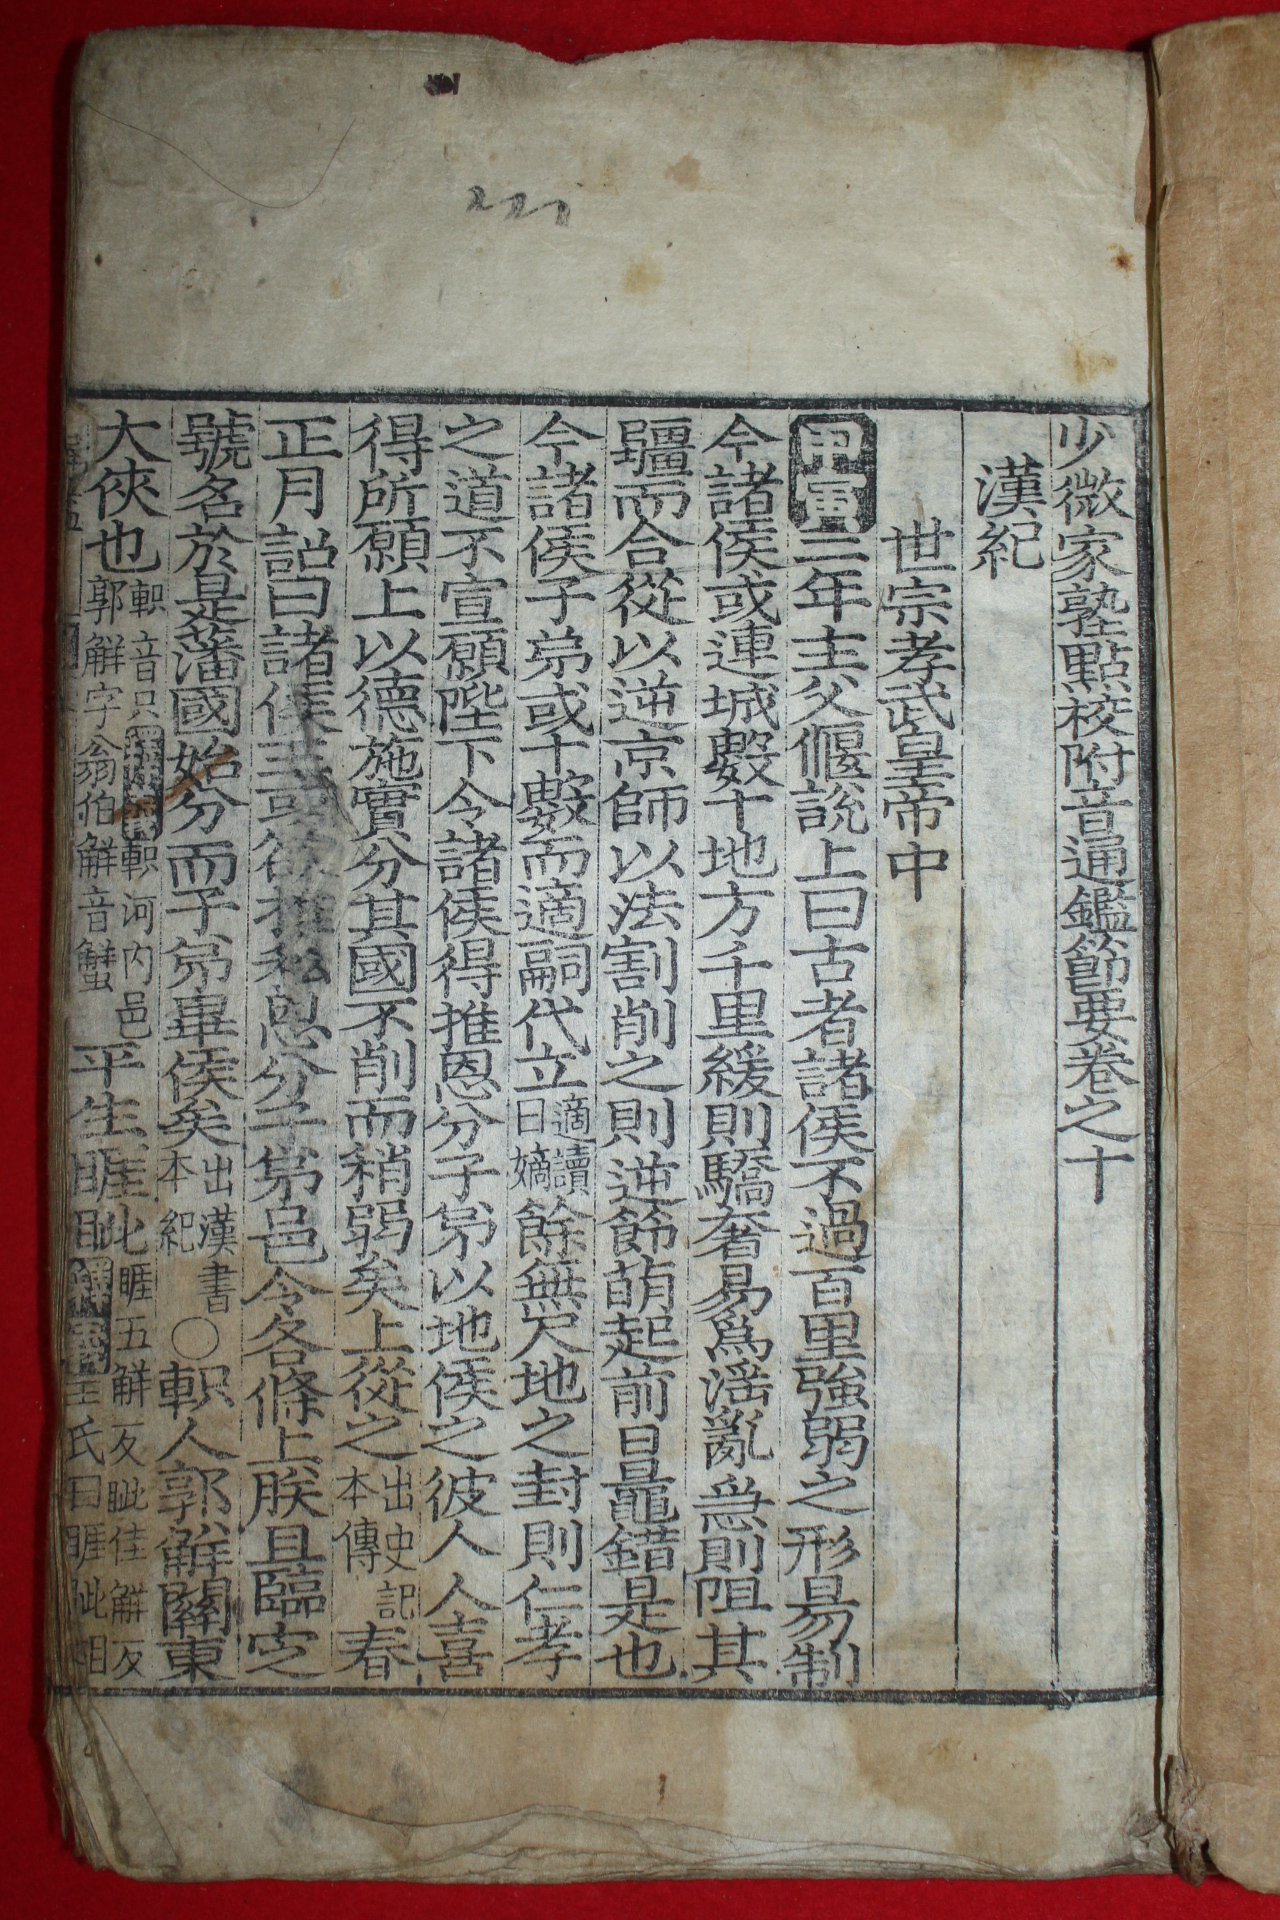 少微家塾點校附音通鑑節要卷之十
漢紀
世宗孝武皇帝中
甲寅二年主父偃說上曰古者諸侯不過百里強弱之形易制
今諸侯或連城數十地方千里緩則驕奢易爲淫亂急則阻其
疆而合從以逆京師以法割削之則逆節萌起前日鼂錯是也
今諸侯子弟或十數而適嗣代立適讀曰嫡餘無尺地之封則仁孝
之道不宣願陛下令諸侯得推恩分子弟以地侯之彼人人喜
得所願上以德施實分其國不削而稍弱矣上從之出史記本傳春
正月詔曰諸侯王或欲推私恩分子弟邑令各條上朕且臨定
號名於是藩國始分而子弟畢侯矣出漢書本紀○軹人郭解關東
大俠也軹音只釋義軹河內邑郭解字翁伯解音蟹平生睚眦睚五解反眦仕解反釋義王氏曰睚眦相